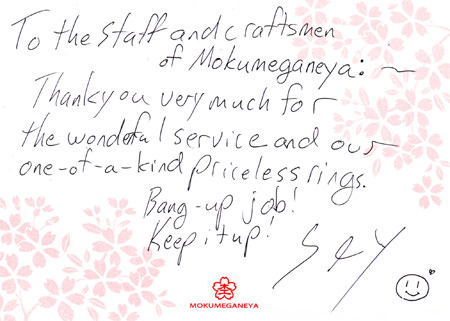 To the staff and craftsmen
of Mokumeganeya: ~
Thank you very much for
the wonderful service and our
one-of-a-kind priceless rings.
Bang-up job!
Keep it up!
S & Y
MOKUMEGANEYA